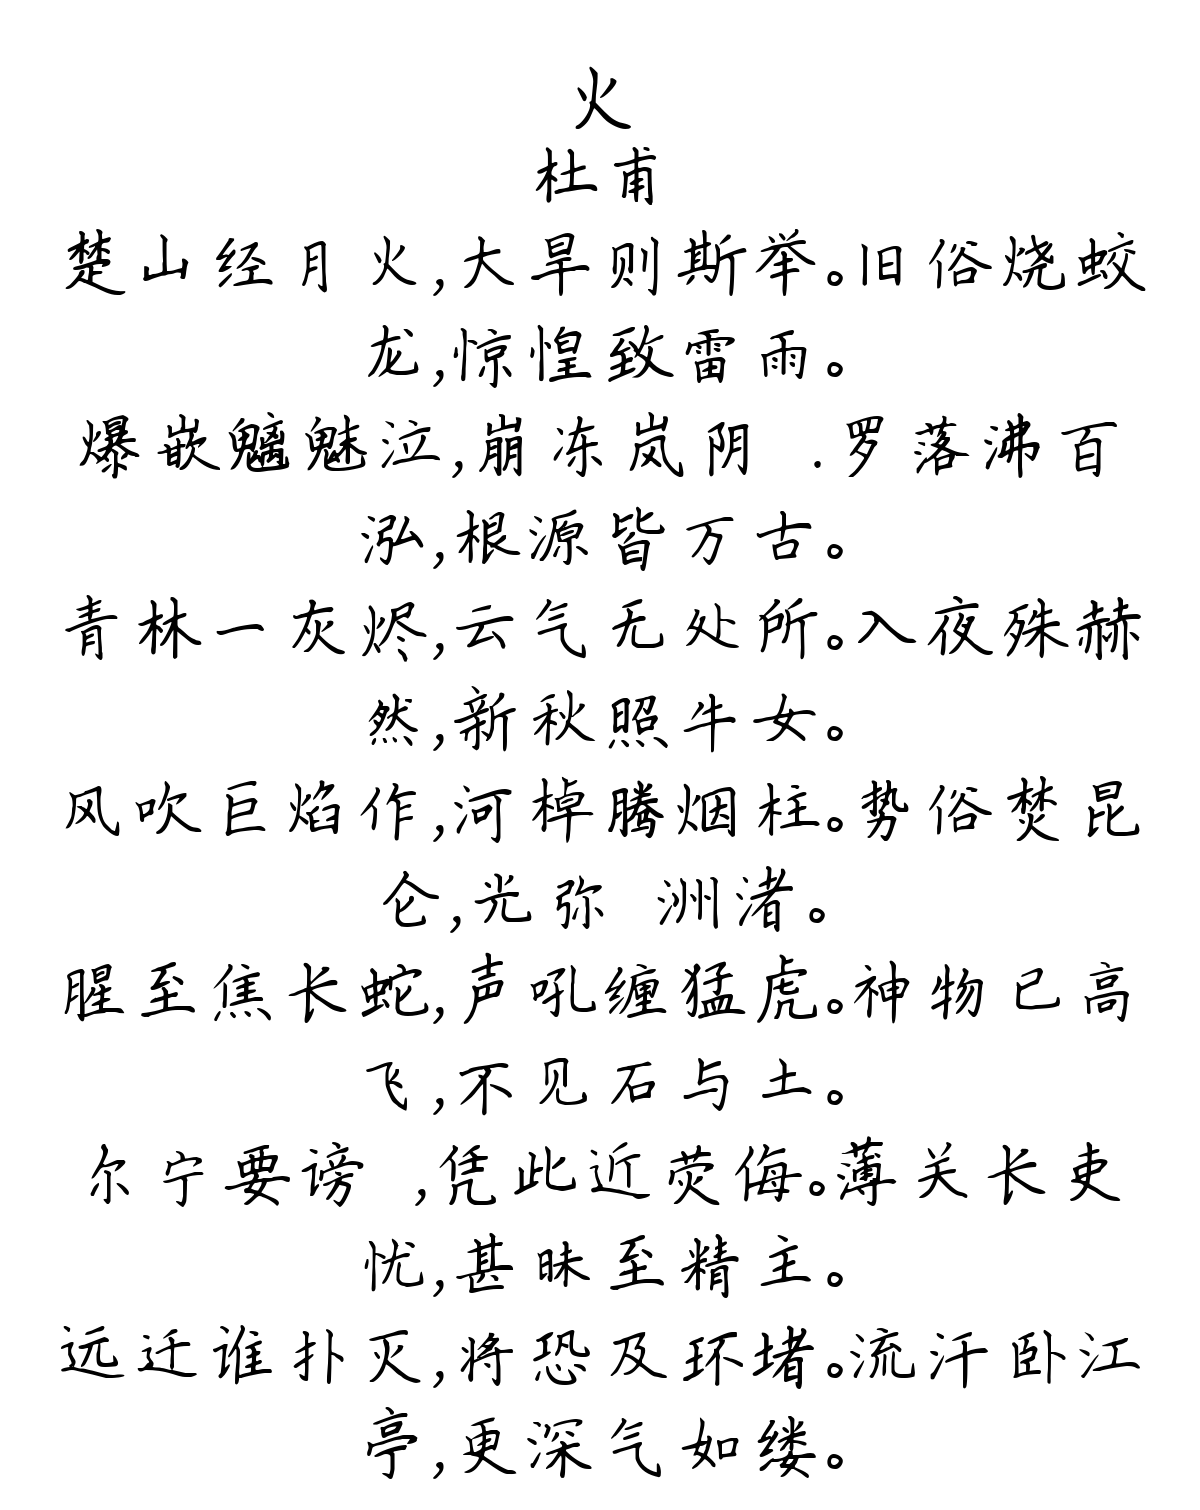 火
杜甫
楚山经月火,大旱则斯举。旧俗烧蛟
龙,惊惶致雷雨。
爆嵌魑魅泣,崩冻岚阴 .罗落沸百
泓,根源皆万古。
青林一灰烬,云气无处所。入夜殊赫
然,新秋照牛女。
风吹巨焰作,河棹腾烟柱。势俗焚昆
仑,光弥 洲渚。
腥至焦长蛇,声吼缠猛虎。神物已高
飞,不见石与土。
尔宁要谤 ,凭此近荧侮。薄关长吏
忧,甚昧至精主。
远迁谁扑灭,将恐及环堵。流汗卧江
亭,更深气如缕。